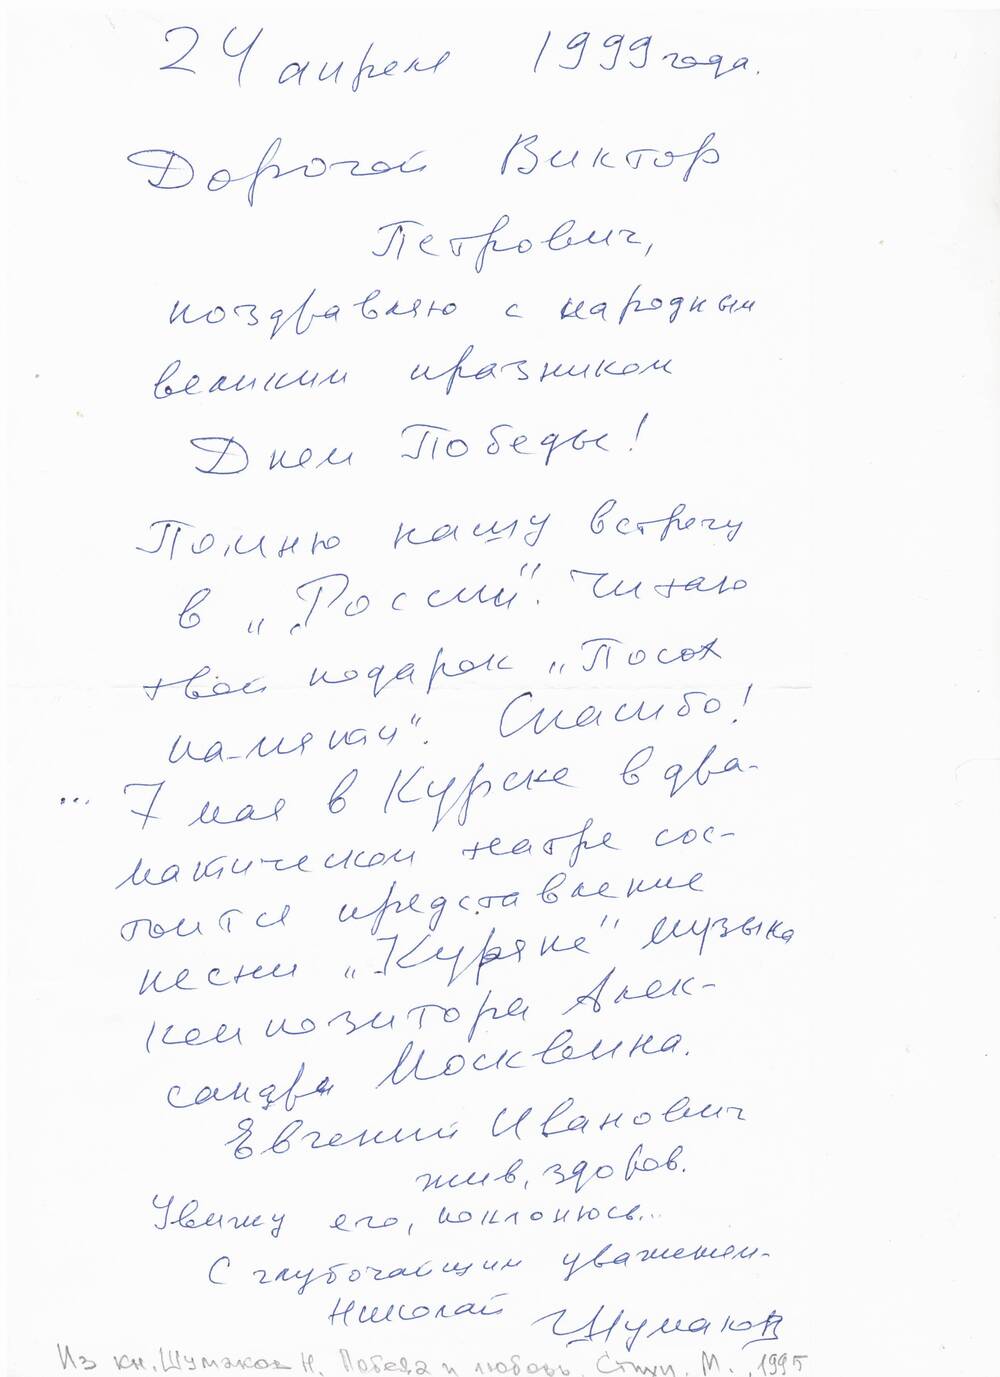 24 апреля 1999 года.
Дорогой Виктор
Петрович,
поздравляю с народным
великим празником
Днем Победы!
Помню нашу встречу
в „России". Читаю
твой подарок „Посох
памяти". Спасибо!
... 7 мая в Курске в дра-
матическом театре сос-
тоится представление
песни „Куряне" музыка
композитора Алек-
сандра Москвина.
Евгений Иванович
жив, здоров.
Увижу его, поклонюсь...
С глубочайшим уважением-
Николай Шумаков
Из кн. Шумаков Н. Победа и любовь. Стихи. М., 1995